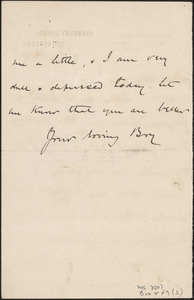 me a little, & I am very
dull & depressed today. let
me know that you are better
Your loving Boy